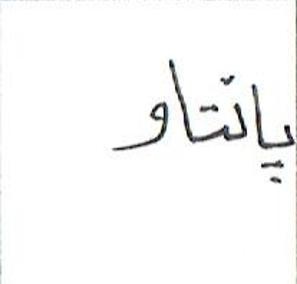 پانتاو